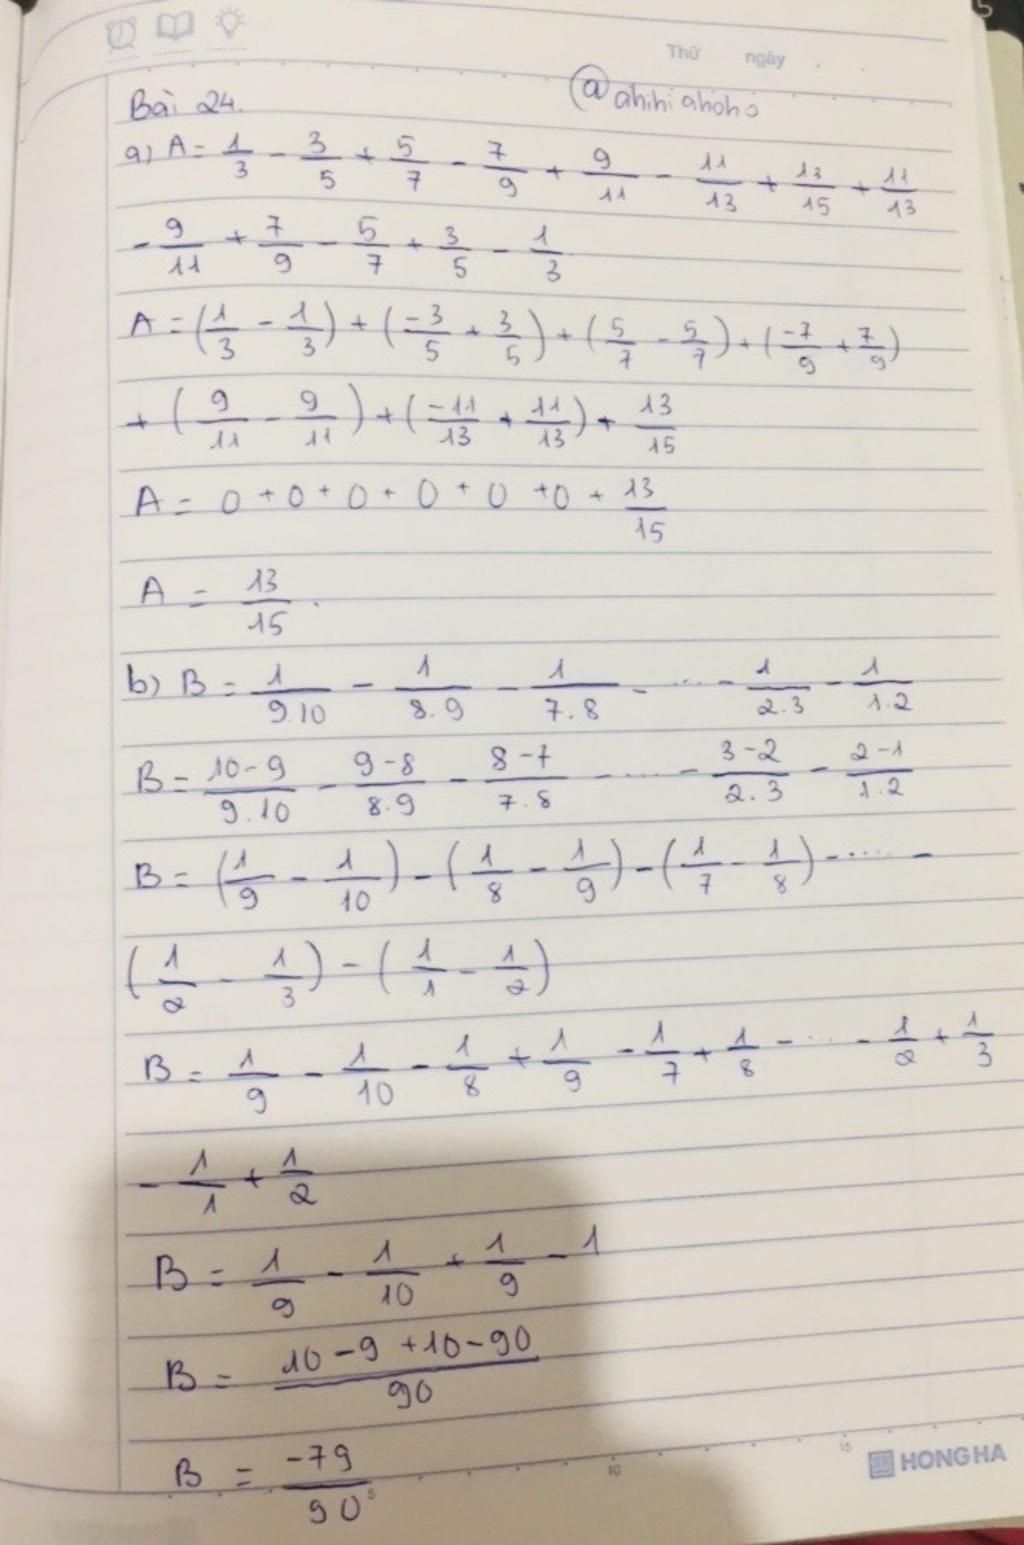 Thứ ngày
Bài 24. @ahihiahoho
a) A = 1/3 - 3/5 + 5/7 - 7/9 + 9/11 - 11/13 + 13/15 + 11/13
- 9/11 + 7/9 - 5/7 + 3/5 - 1/3
A = (1/3 - 1/3) + (-3/5 + 3/5) + (5/7 - 5/7) + (-7/9 + 7/9)
+ (9/11 - 9/11) + (-11/13 + 11/13) + 13/15
A = 0 + 0 + 0 + 0 + 0 + 0 + 13/15
A = 13/15.
b) B = 1/9.10 - 1/8.9 - 1/7.8 - ... - 1/2.3 - 1/1.2
B = 10-9/9.10 - 9-8/8.9 - 8-7/7.8 - .... - 3-2/2.3 - 2-1/1.2
B = (1/9 - 1/10) - (1/8 - 1/9) - (1/7 - 1/8) - ..... -
(1/2 - 1/3) - (1/1 - 1/2)
B = 1/9 - 1/10 - 1/8 + 1/9 - 1/7 + 1/8 - ... - 1/2 + 1/3
- 1/1 + 1/2
B = 1/9 - 1/10 + 1/9 - 1
B = 10-9+10-90/90
B = -79/90
5 10 15
HONG HA